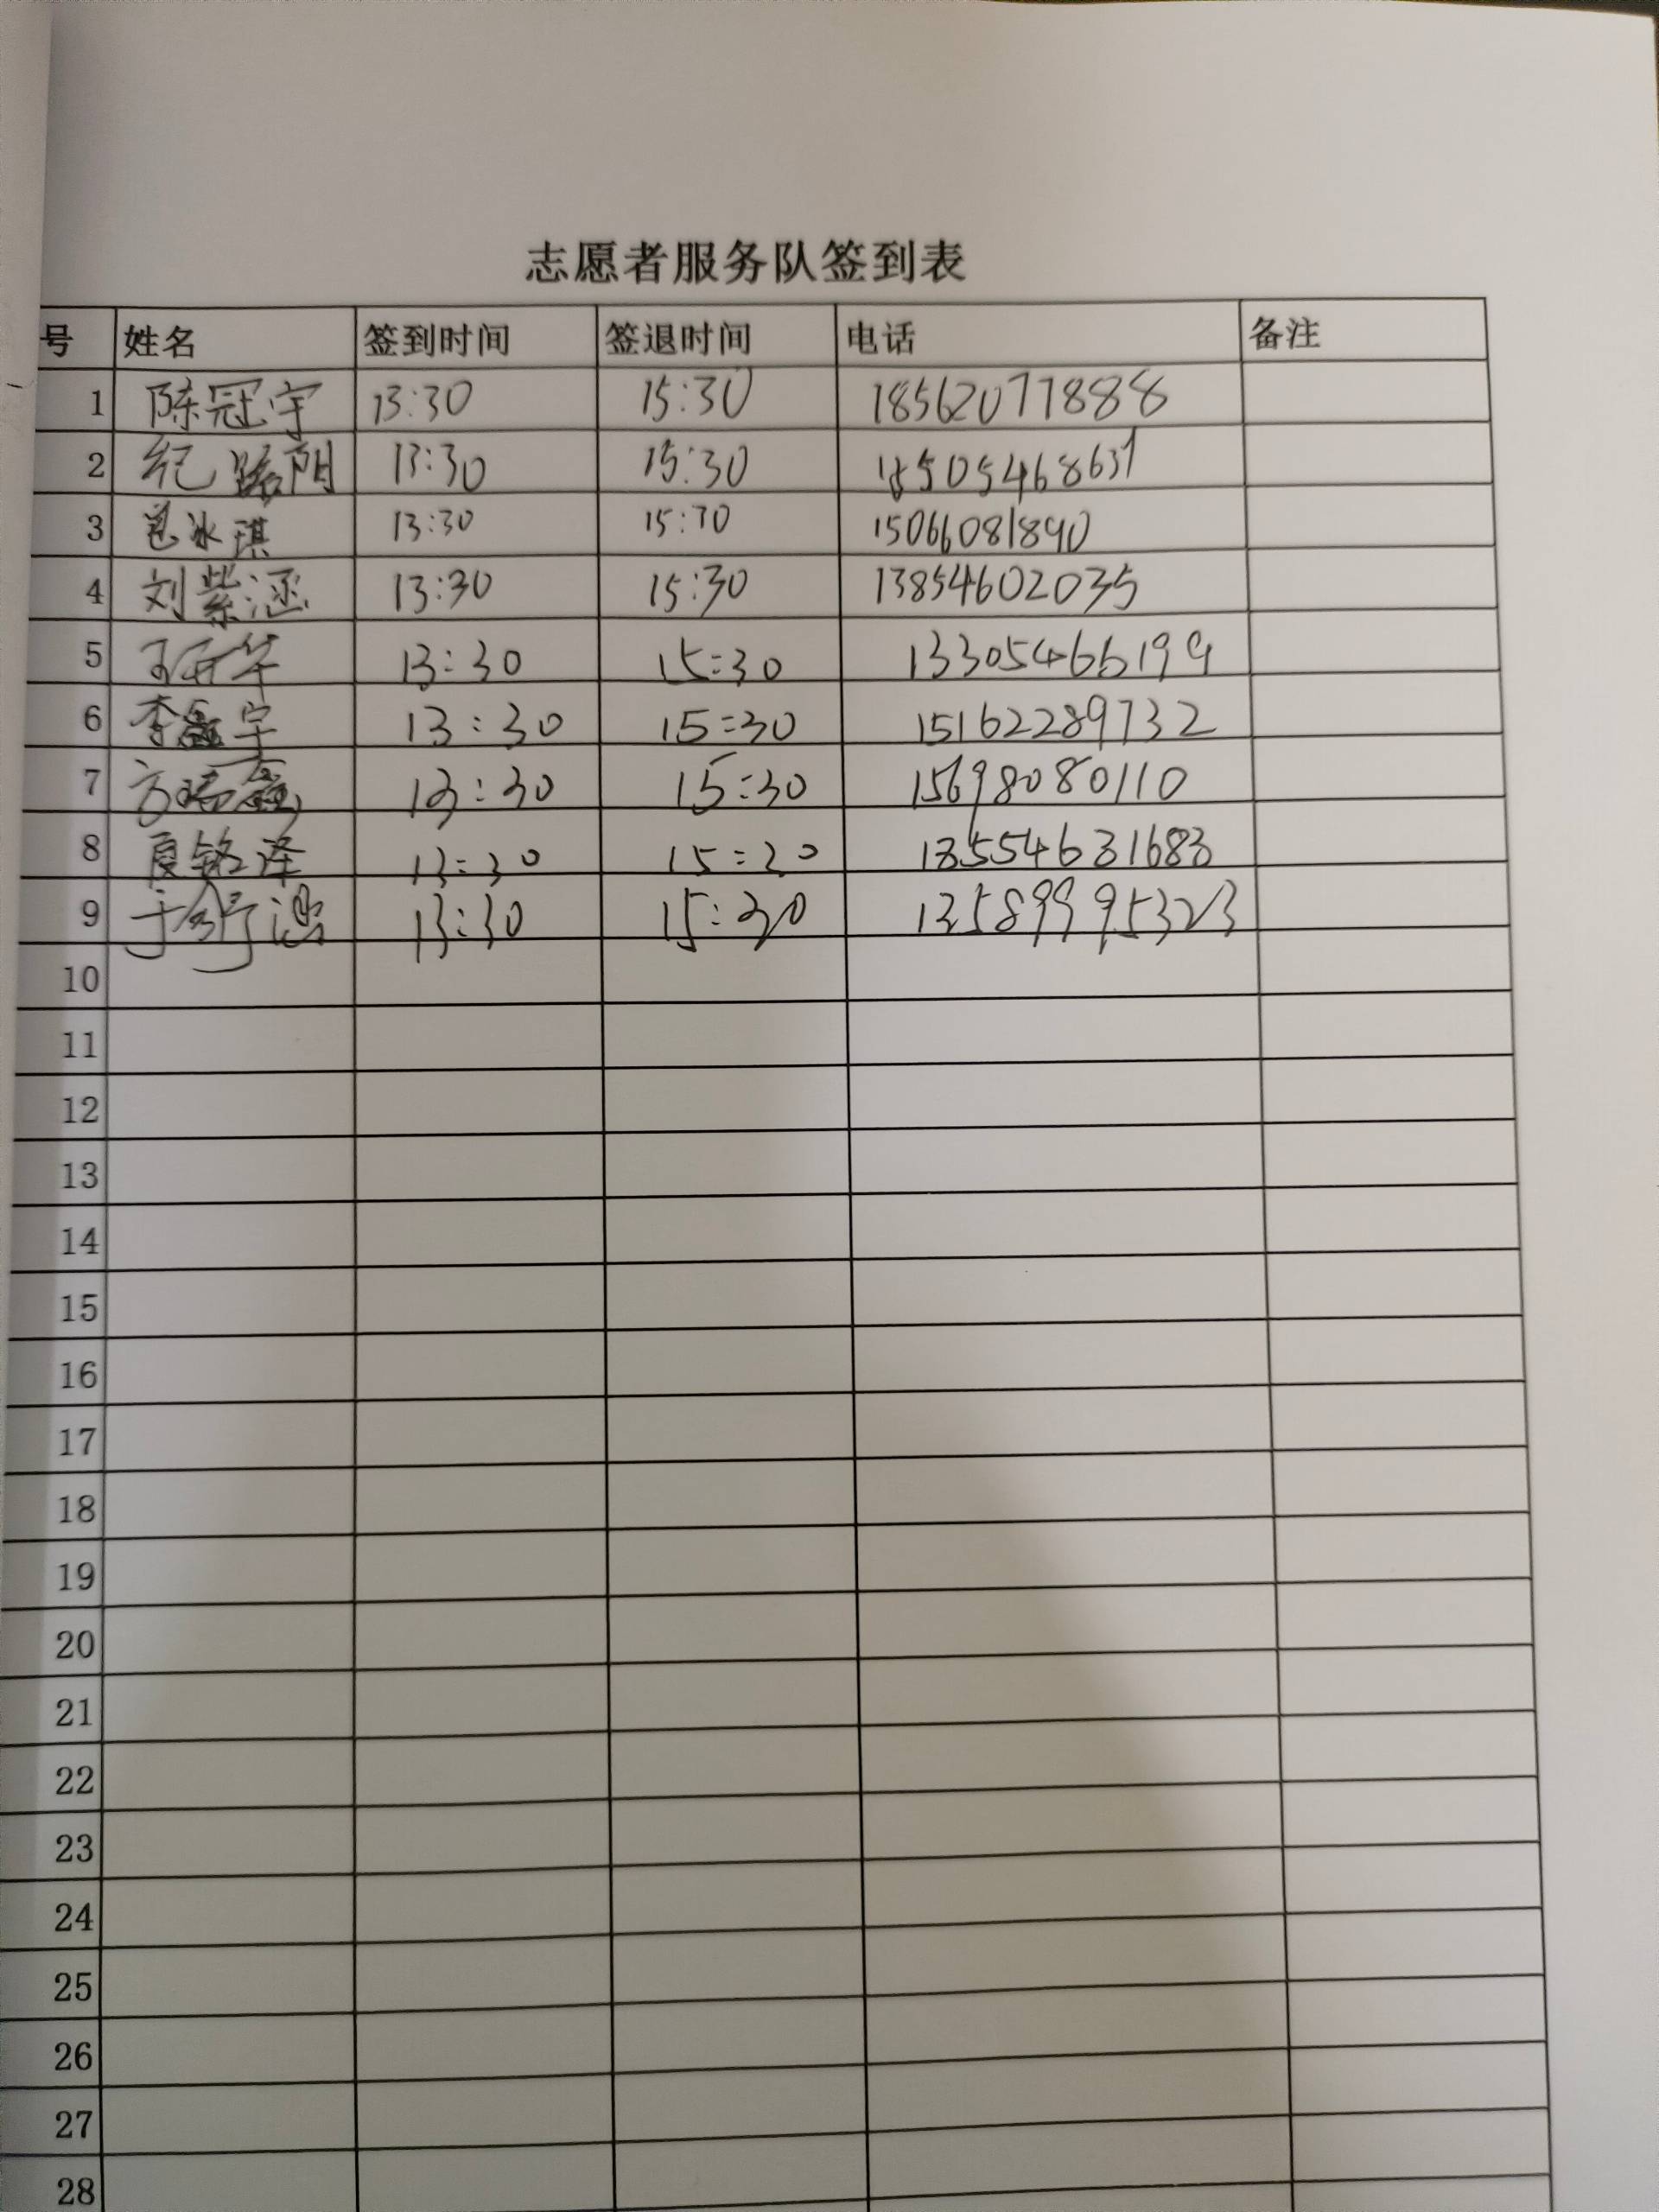 志愿者服务队签到表
号 姓名 签到时间 签退时间 电话 备注
1 陈冠宇 13:30 15:30 18562077888
2 纪 阳 13:30 15:30 18505468631
3 冰琪 13:30 15:30 15066081890
4 刘紫涵 13:30 15:30 13854602035
5 13:30 15:30 13305466199
6 李鑫宇 13:30 15:30 15162289732
7 方瑞鑫 13:30 15:30 15698080110
8 夏铭泽 13:30 15:30 13554631683
9 于舒鸿 13:30 15:30 13589995323
10
11
12
13
14
15
16
17
18
19
20
21
22
23
24
25
26
27
28